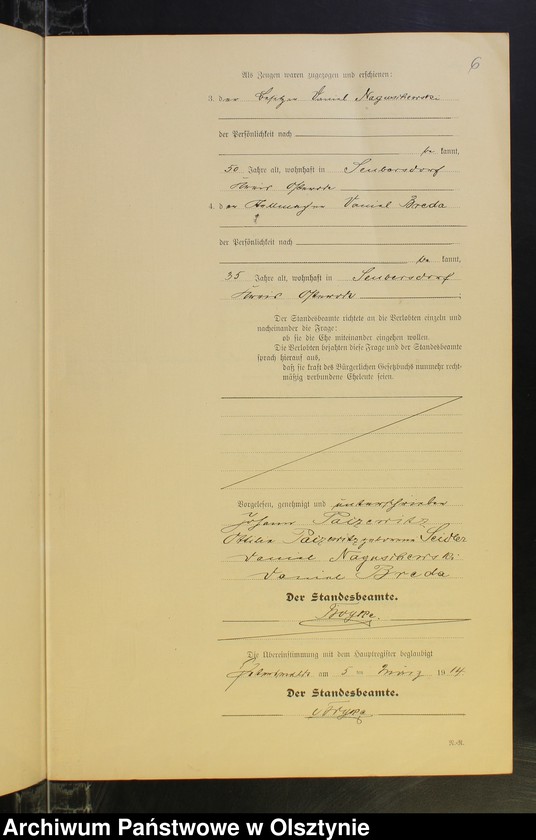 6
Als Zeugen waren zugezogen und erschienen:
3. der Besitzer Daniel Nagusikewski
der Persönlichkeit nach
be kannt,
50 Jahre alt, wohnhaft in Seubersdorf
Kreis Osterode
4. der Daniel Breda
der Persönlichkeit nach
be kannt,
35 Jahre alt, wohnhaft in Seubersdorf
Kreis Osterode ;
Der Standesbeamte richtete an die Verlobten einzeln und
nacheinander die Frage:
ob sie die Ehe miteinander eingehen wollen.
Die Verlobten bejahten diese Frage und der Standesbeamte
sprach hierauf aus,
daß sie kraft des Bürgerlichen Gesetzbuchs nunmehr recht-
mäßig verbundene Eheleute seien.
Vorgelesen, genehmigt und unterschrieben
Johann Paizewitz
Ottilie Paizewitz geborene Seidler
Daniel Nagusikewski
Daniel Breda
Der Standesbeamte.
Die Übereinstimmung mit dem Hauptregister beglaubigt
am 5 ten März 1914.
Der Standesbeamte.
Archiwum Państwowe w Olsztynie